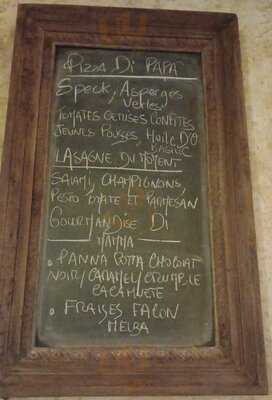 Pizza Di PAPA
Speck, Asperges
Vertes,
TOMATES CERISES CONFITES
JEUNES POUSSES, HUILE D'O
BASILIC
LASAGNE DU MOMENT
SALAMI, CHAMPIGNONS,
PESTO TOMATE ET PARMESAN
GOURMANDISE Di
MAMMA
. PANNA COTTA CHOCOLAT
NOIR/CARAMEL/CRUMBLE
CACAHUETE
. FRAISES FACON
MELBA